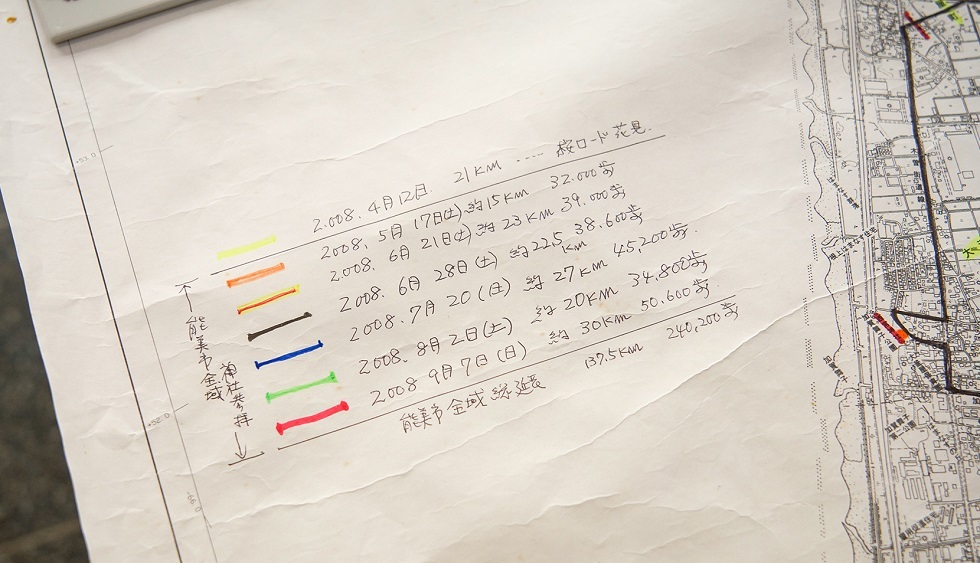 2008. 4月12日 21KM ‥‥ 桜ロード花見.
2008. 5月17日(土) 約15KM 32.000歩
2008. 6月21日(土) 約23KM 39.000歩
2008. 6月28日(土) 約22.5KM 38.600歩
2008. 7月20(日) 約27KM 45,200歩.
2008. 8月2日(土) 約20KM 34.800歩
2008 9月7日(日) 約30KM 50.600歩
能美市全域総延長 137.5KM 240,200歩
能美市全域
神社参拝